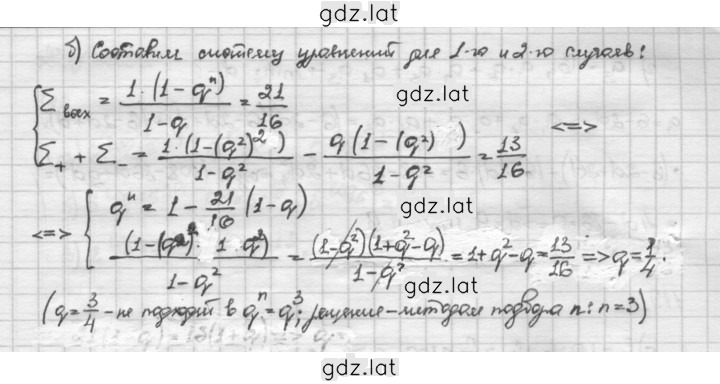 gdz.lat
б) Составим систему уравнений для 1-го и 2-го случаев:
Σ всех = 1·(1-qⁿ)/(1-q) = 21/16
gdz.lat
<=>
Σ₊ + Σ₋ = 1·(1-(q²)²)/(1-q²) - q(1-(q²))/(1-q²) = 13/16
qⁿ = 1 - 21/16 (1-q)
gdz.lat
<=> (1-(q²)² 1 q²)/(1-q²) = (1-q²)(1+q²-q)/(1-q²) = 1+q²-q = 13/16 => q = 1/4.
(q = 3/4 - не подходит в qⁿ = q³; решение - методом подбора n: n=3)
gdz.lat